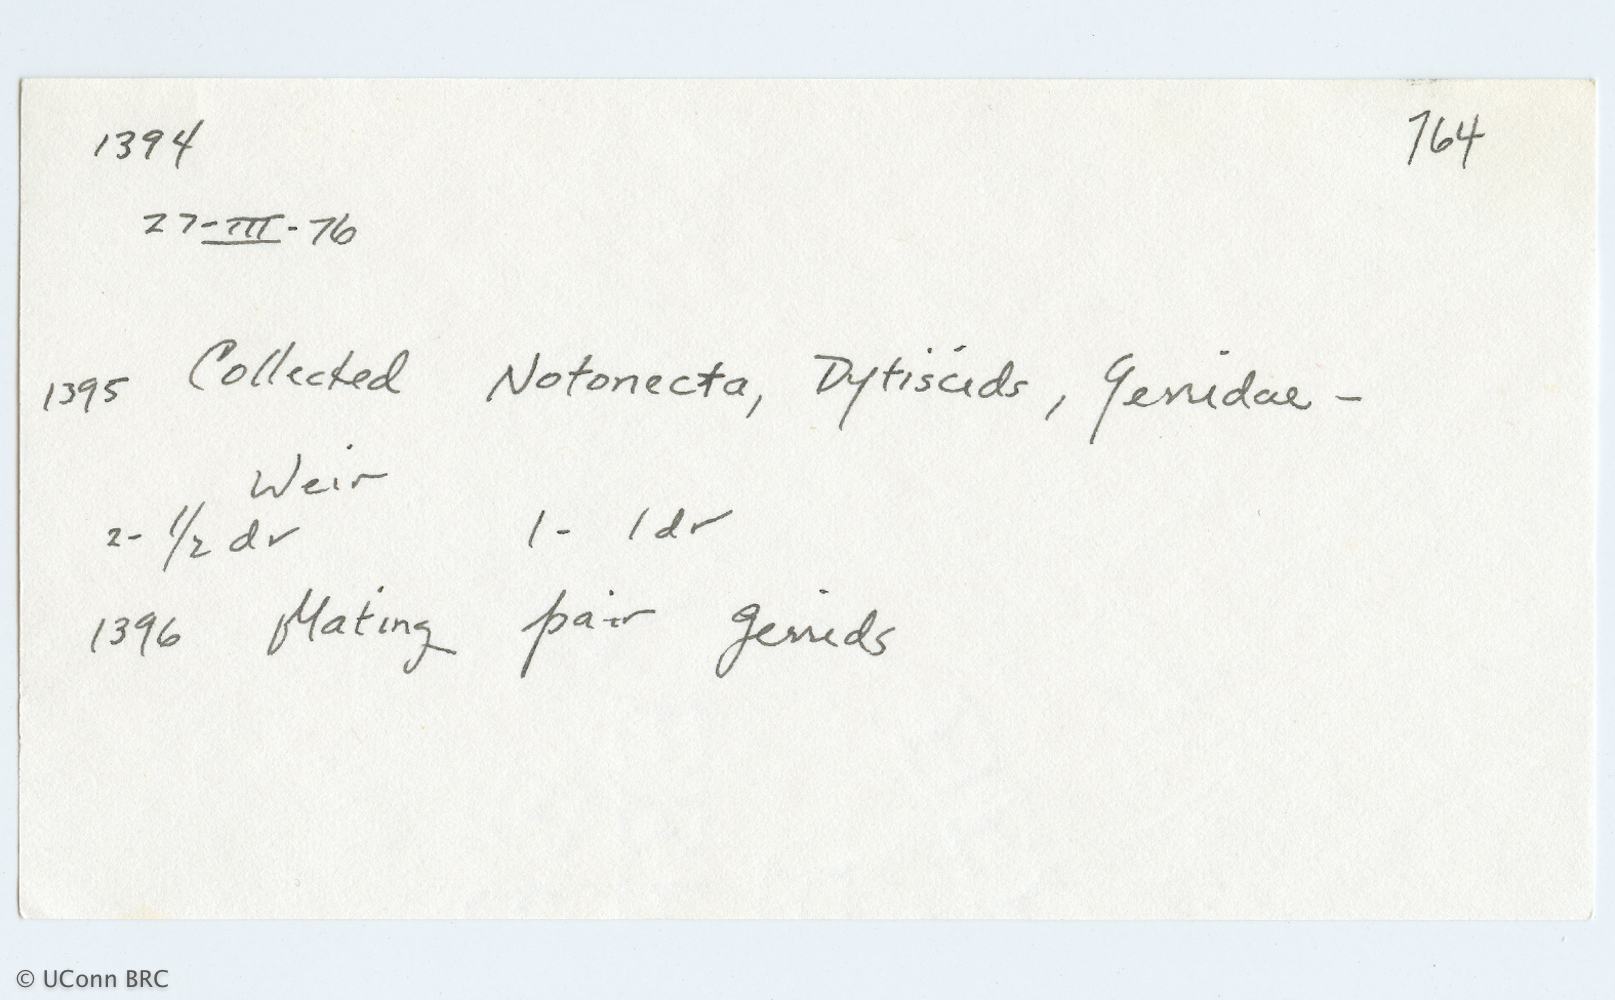 1394 764
27-III-76
1395 Collected Notonecta, Dytiscids, Gerridae -
Weir
2- 1/2 dr 1- 1dr
1396 Mating pair gerrids
© UConn BRC